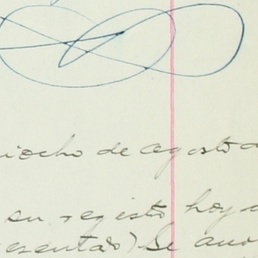 iocho de agosto d
su registo hoy a
esentado) Se ano